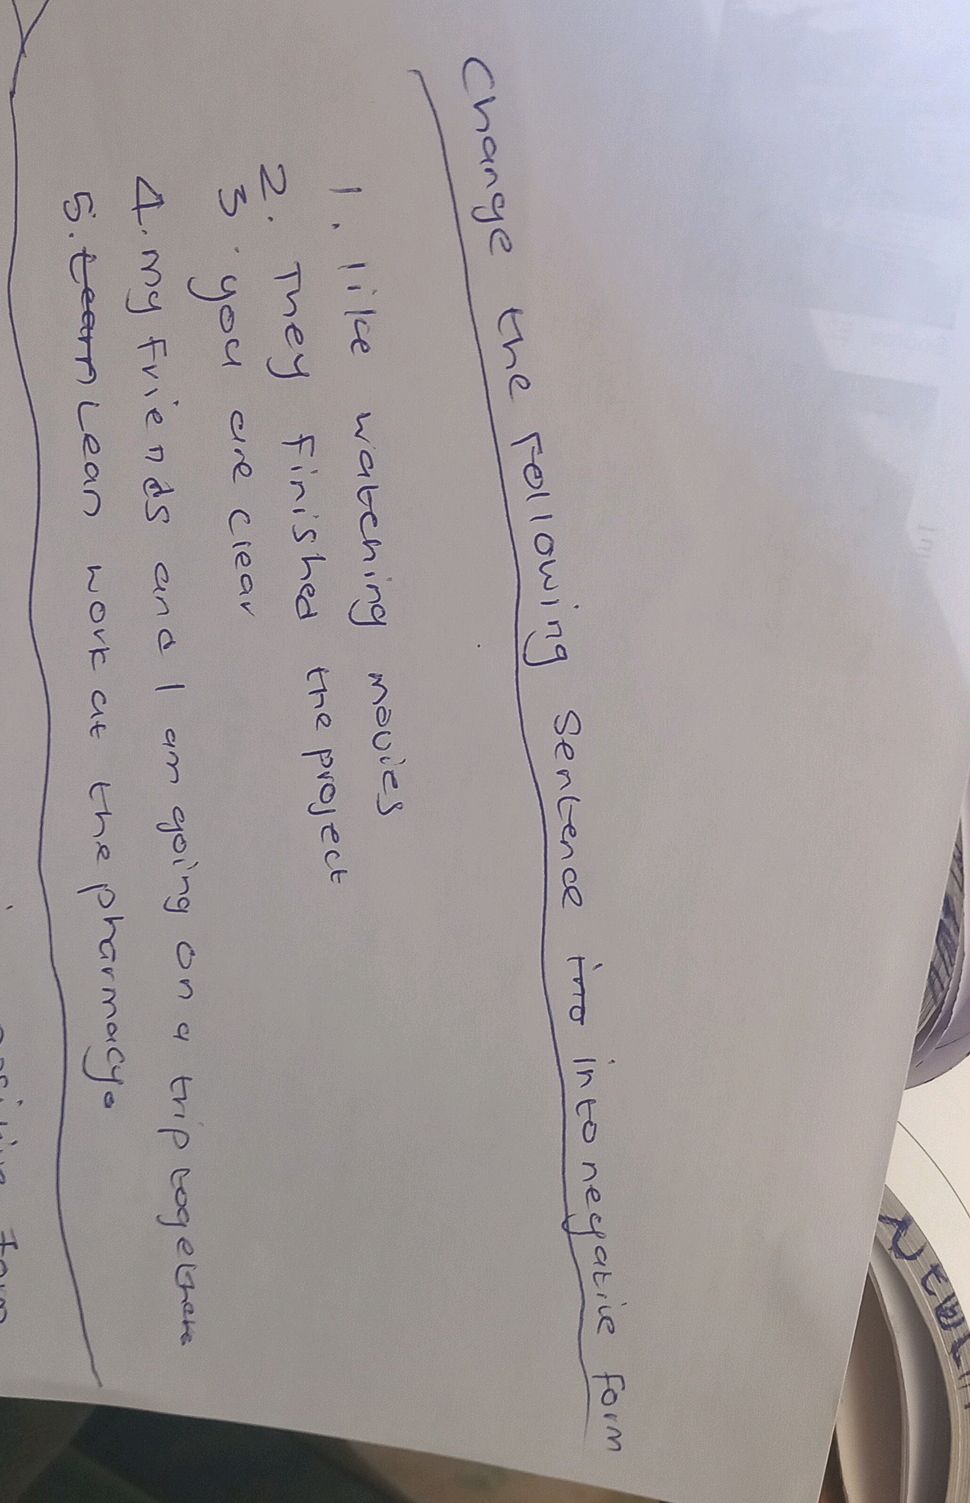 Change the Following Sentence into negative form
1. I like watching movies
2. They finished the project
3. you are clear
4. my friends and I am going on a trip together
5. Lean work at the pharmacy.